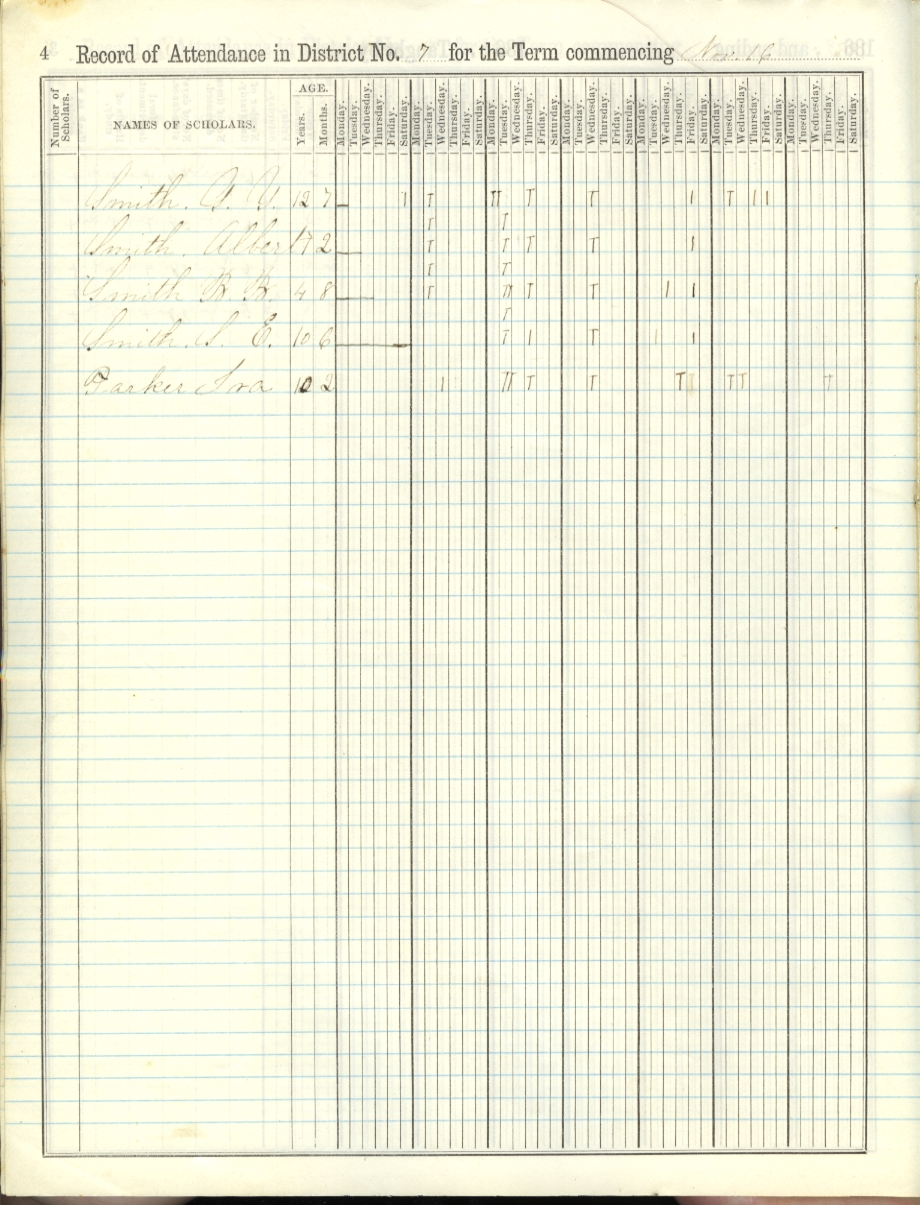 4 Record of Attendance in District No. 7 for the Term commencing Nov. 16
Number of Scholars. NAMES OF SCHOLARS. AGE. Years. Months. Monday. Tuesday. Wednesday. Thursday. Friday. Saturday. Monday. Tuesday. Wednesday. Thursday. Friday. Saturday. Monday. Tuesday. Wednesday. Thursday. Friday. Saturday. Monday. Tuesday. Wednesday. Thursday. Friday. Saturday. Monday. Tuesday. Wednesday. Thursday. Friday. Saturday. Monday. Tuesday. Wednesday. Thursday. Friday. Saturday. Monday. Tuesday. Wednesday. Thursday. Friday. Saturday.
Smith. 12 7
Smith. Albert 17 2
Smith H. H. 4 8
Smith. S. E. 10 6
Parker Ira 10 2